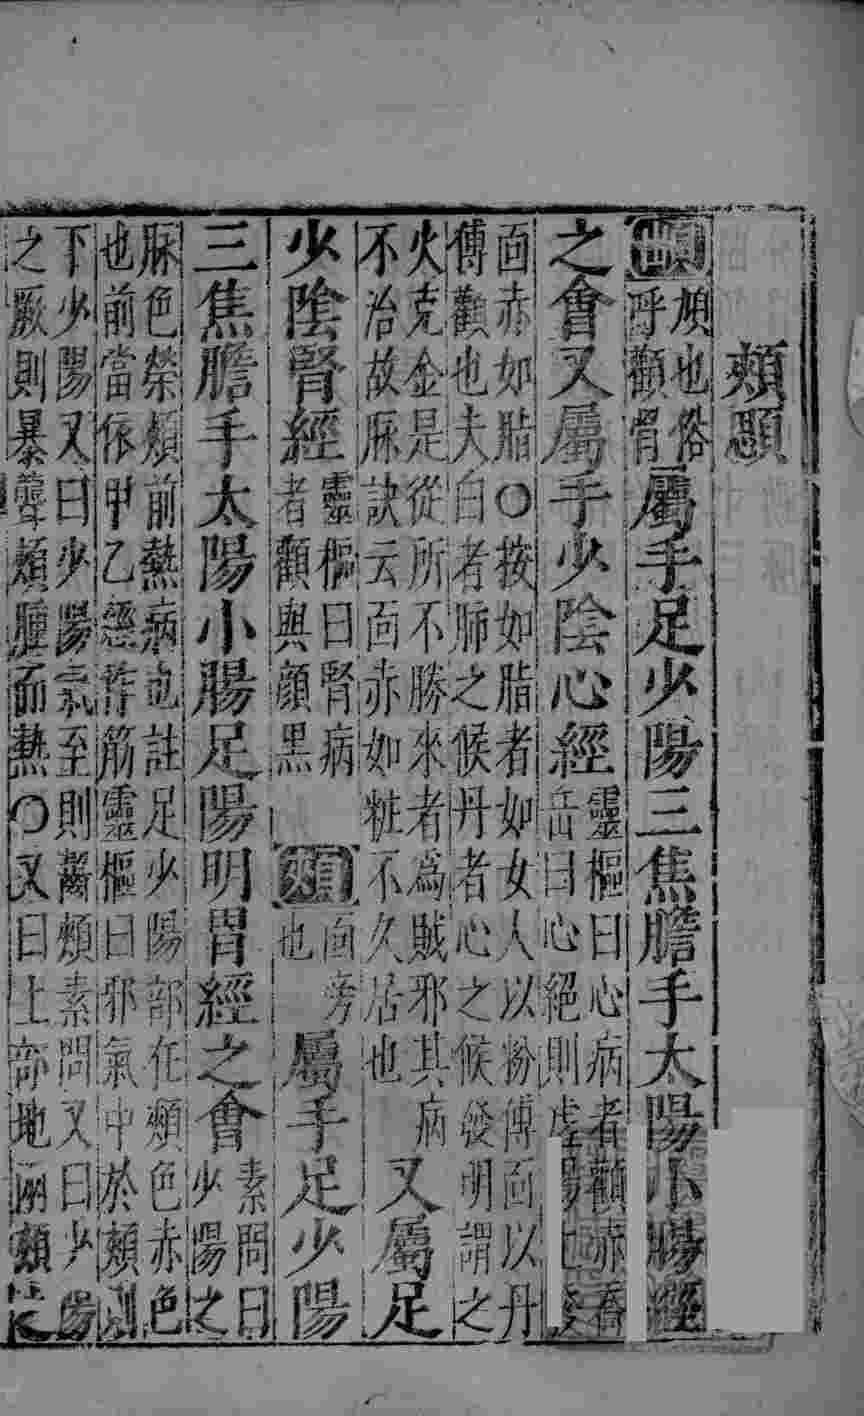 頰
頄也俗
呼顴骨
屬手足少陽三焦膽手太陽小腸經
之會又屬手少陰心經
靈樞曰心病者顴赤喬
岳曰心絕則虛陽上發
面赤如脂○按如脂者如女人以粉傅面以丹
傅顴也夫白者肺之候丹者心之候發明謂之
火克金是從所不勝來者爲賊邪其病
不治故脉訣云面赤如粧不久居也
又屬足
少陰腎經
靈樞曰腎病
者顴與顏黑
頰
面旁
也
屬手足少陽
三焦膽手太陽小腸足陽明胃經之會
素問曰
少陽之
脉色榮頰前熱病也註足少陽部在頰色赤色
也前當依甲乙經作筋靈樞曰邪氣中於頰則
下少陽又曰少陽氣至則齧頰素問又曰少陽
之厥則暴聾頰腫而熱○又曰上部地兩頰之